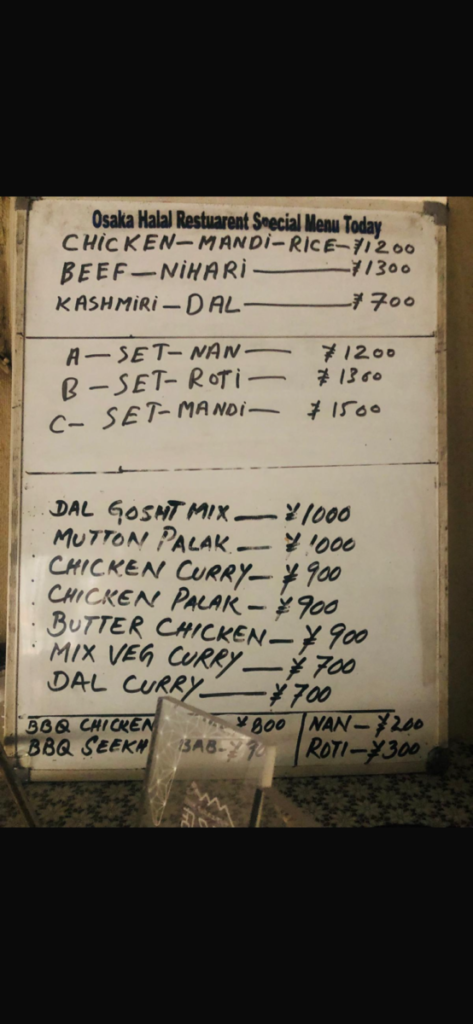 Osaka Halal Restuarent Special Menu Today
CHICKEN-MANDI-RICE-¥1200
BEEF-NIHARI-¥1300
KASHMIRI-DAL-¥700
A-SET-NAN-¥1200
B-SET-ROTI-¥1300
C-SET-MANDI-¥1500
DAL GOSHT MIX-¥1000
MUTTON PALAK-¥1000
CHICKEN CURRY-¥900
CHICKEN PALAK-¥900
BUTTER CHICKEN-¥900
MIX VEG CURRY-¥700
DAL CURRY-¥700
BBQ CHICKEN ¥800
BBQ SEEKH BAB-¥90
NAN-¥200
ROTI-¥300